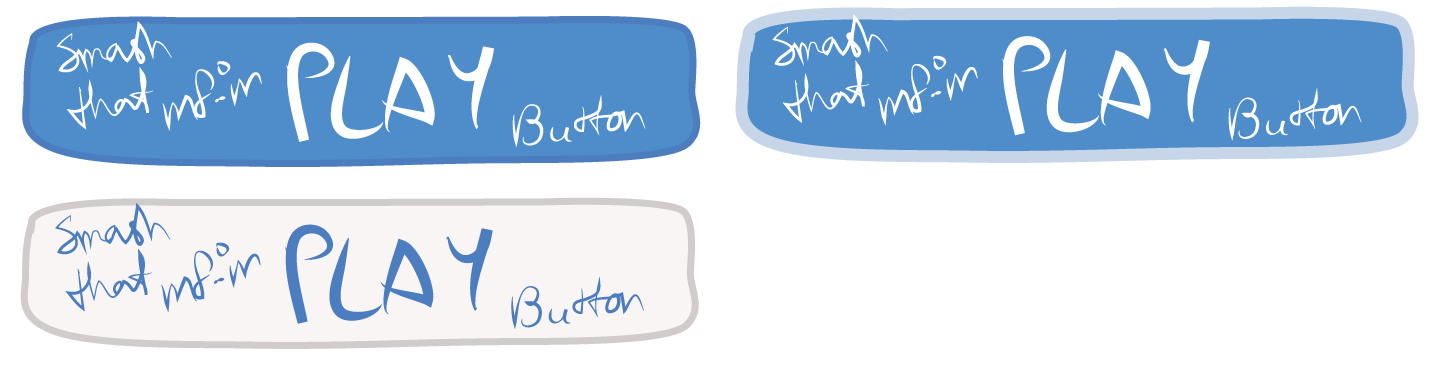 Smash
that mf-in PLAY Button
Smash
that mf-in PLAY Button
Smash
that mf-in PLAY Button